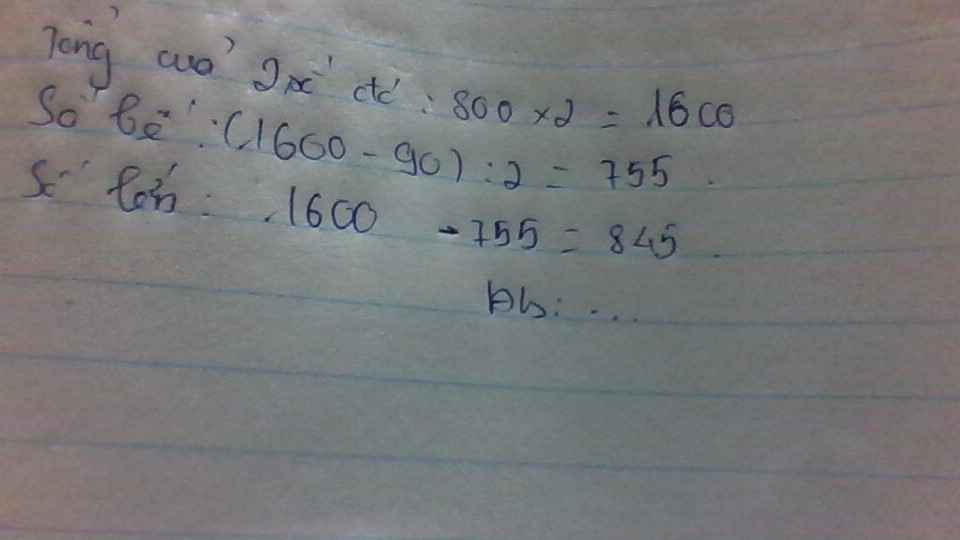 Tổng của 2 số đó : 800 x 2 = 1600
Số bé : (1600 - 90) : 2 = 755 .
Số lớn : 1600 - 755 = 845 .
Đs : ...